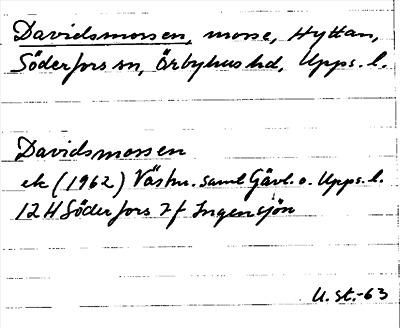 Davidsmossen, mosse, Hyttan,
Söderfors sn, Örbyhus hd, Upps. l.
Davidsmossen
ek (1962) Västm. saml Gävl. o. Upps. l.
12 H Söderfors 7 f Ingensjön
U. st.-63